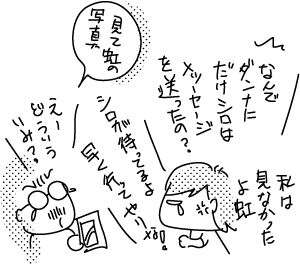 見て虹の
写真
なんで
ダンナに
だけシロは
メッセージ
を送ったの?
私は
見なかった
よ虹
シロが待ってるよ
早く行ってやり
えーっ
どういう
いみ?